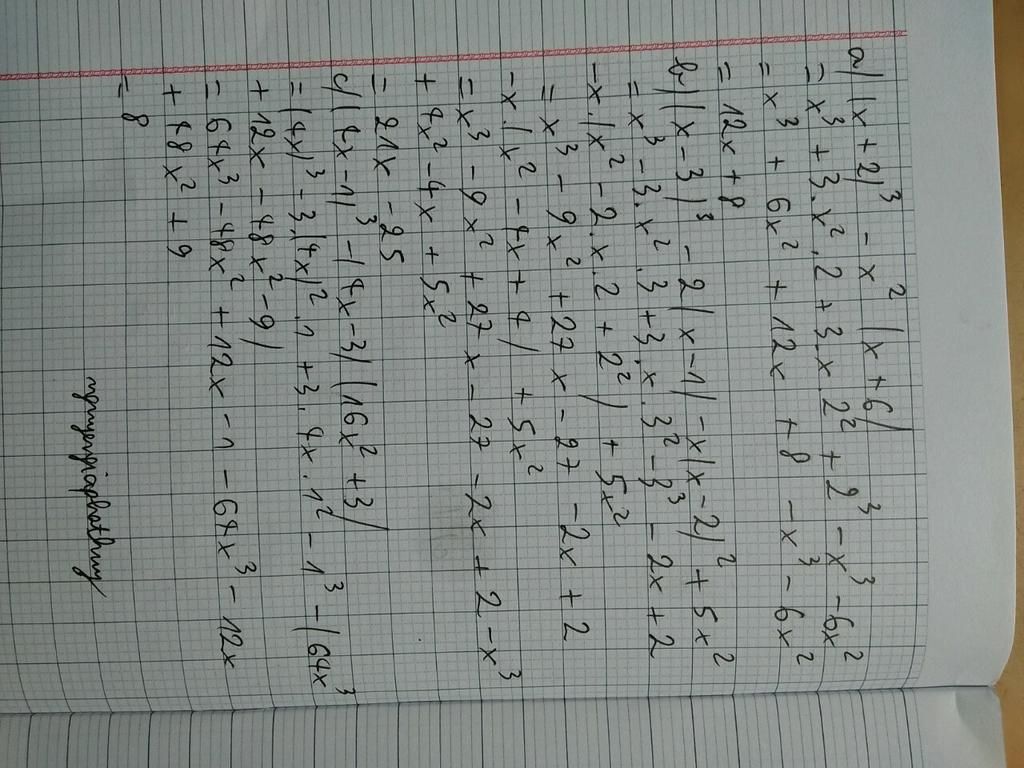 a) (x+2)³ - x² (x+6)
= x³ + 3.x².2 + 3.x.2² + 2³ - x³ - 6x²
= x³ + 6x² + 12x + 8 - x³ - 6x²
= 12x + 8
b) (x-3)³ - 2(x-1) - x(x-2)² + 5x²
= x³ - 3.x².3 + 3.x.3² - 3³ - 2x + 2
- x.(x² - 2.x.2 + 2²) + 5x²
= x³ - 9x² + 27x - 27 - 2x + 2
- x.(x² - 4x + 4) + 5x²
= x³ - 9x² + 27x - 27 - 2x + 2 - x³
+ 4x² - 4x + 5x²
= 21x - 25
c) (4x-1)³ - (4x-3)(16x² + 3)
= (4x)³ - 3.(4x)².1 + 3.4x.1² - 1³ - (64x³
+ 12x - 48x² - 9)
= 64x³ - 48x² + 12x - 1 - 64x³ - 12x
+ 48x² + 9
= 8